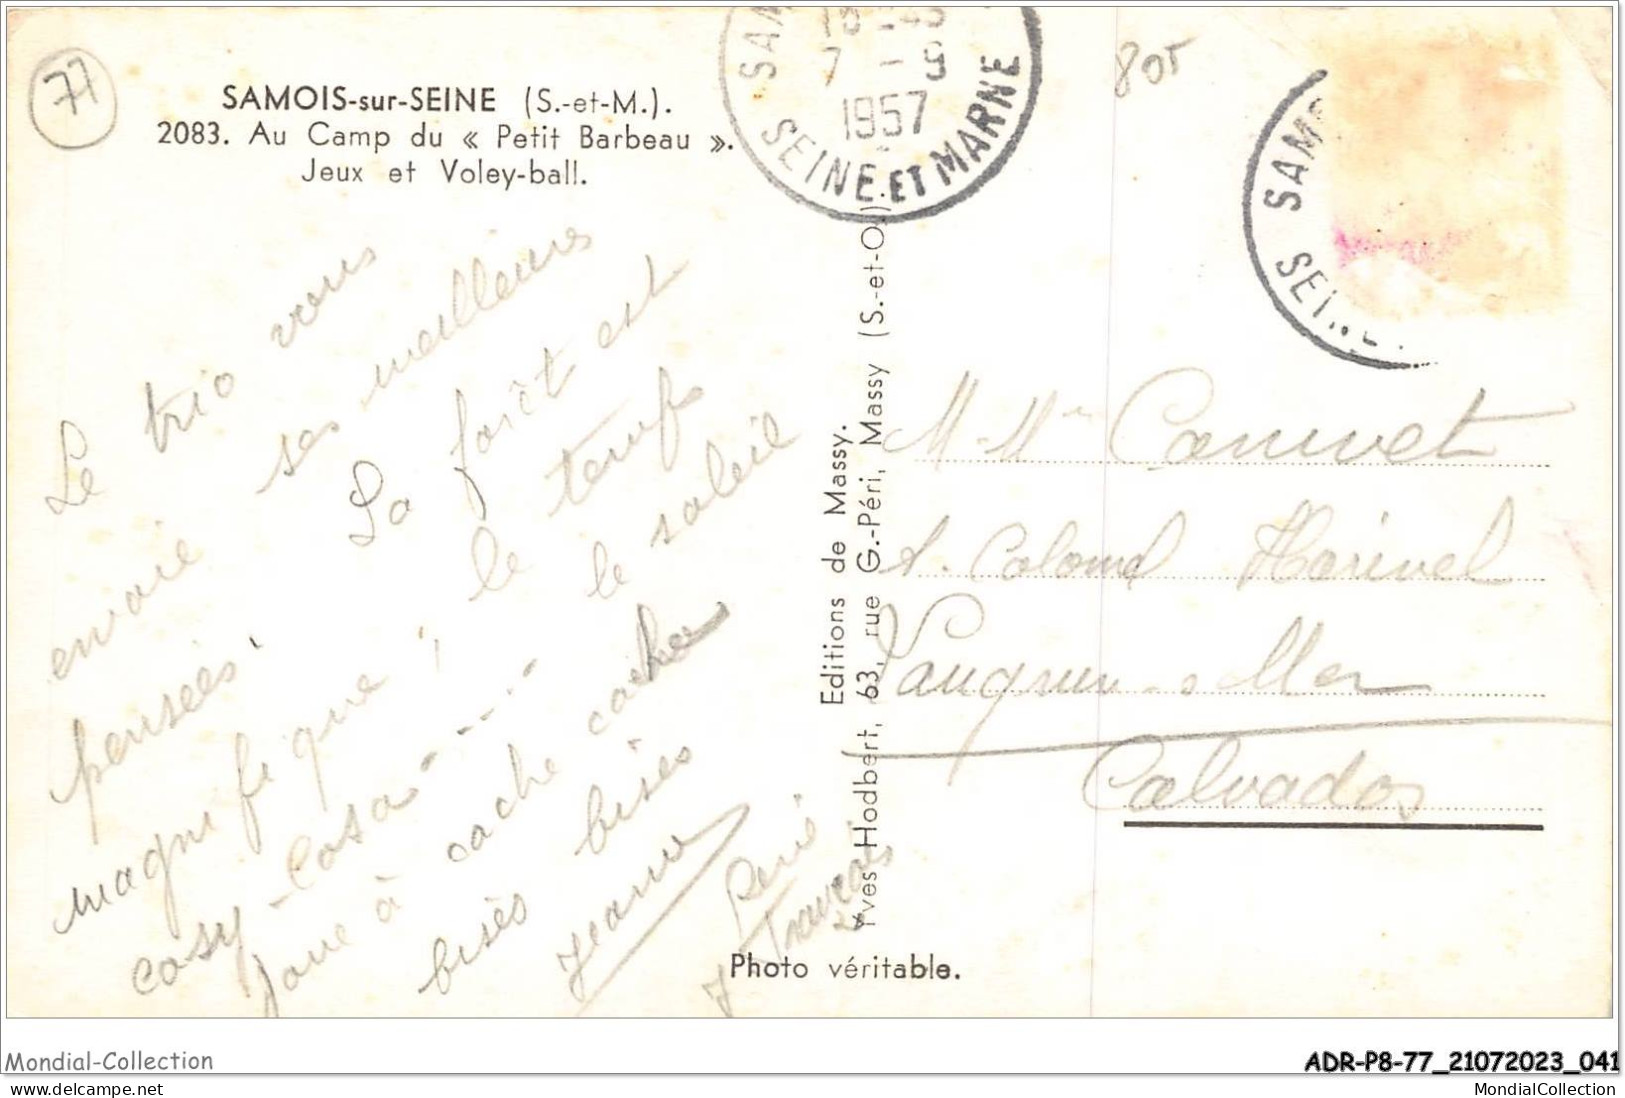 77
SAMOIS-sur-SEINE (S.-et-M.).
2083. Au Camp du « Petit Barbeau ».
Jeux et Voley-ball.
7 - 9
1957
SEINE ET MARNE
805
SAM
SEINE
Le trio vous
envoie ses meilleures
pensées. La forêt est
magnifique ! le temps
cosy-cosa ---- le soleil
joue à cache cache
bises bises
Jeanne
René
François
Editions de Massy.
Yves Hodbert, 63, rue G.-Péri, Massy (S.-et-O.)
Photo véritable.
M. Mme Canivet
Colonel
-s Mer
Calvados
Mondial-Collection
ADR-P8-77_21072023_041
MondialCollection